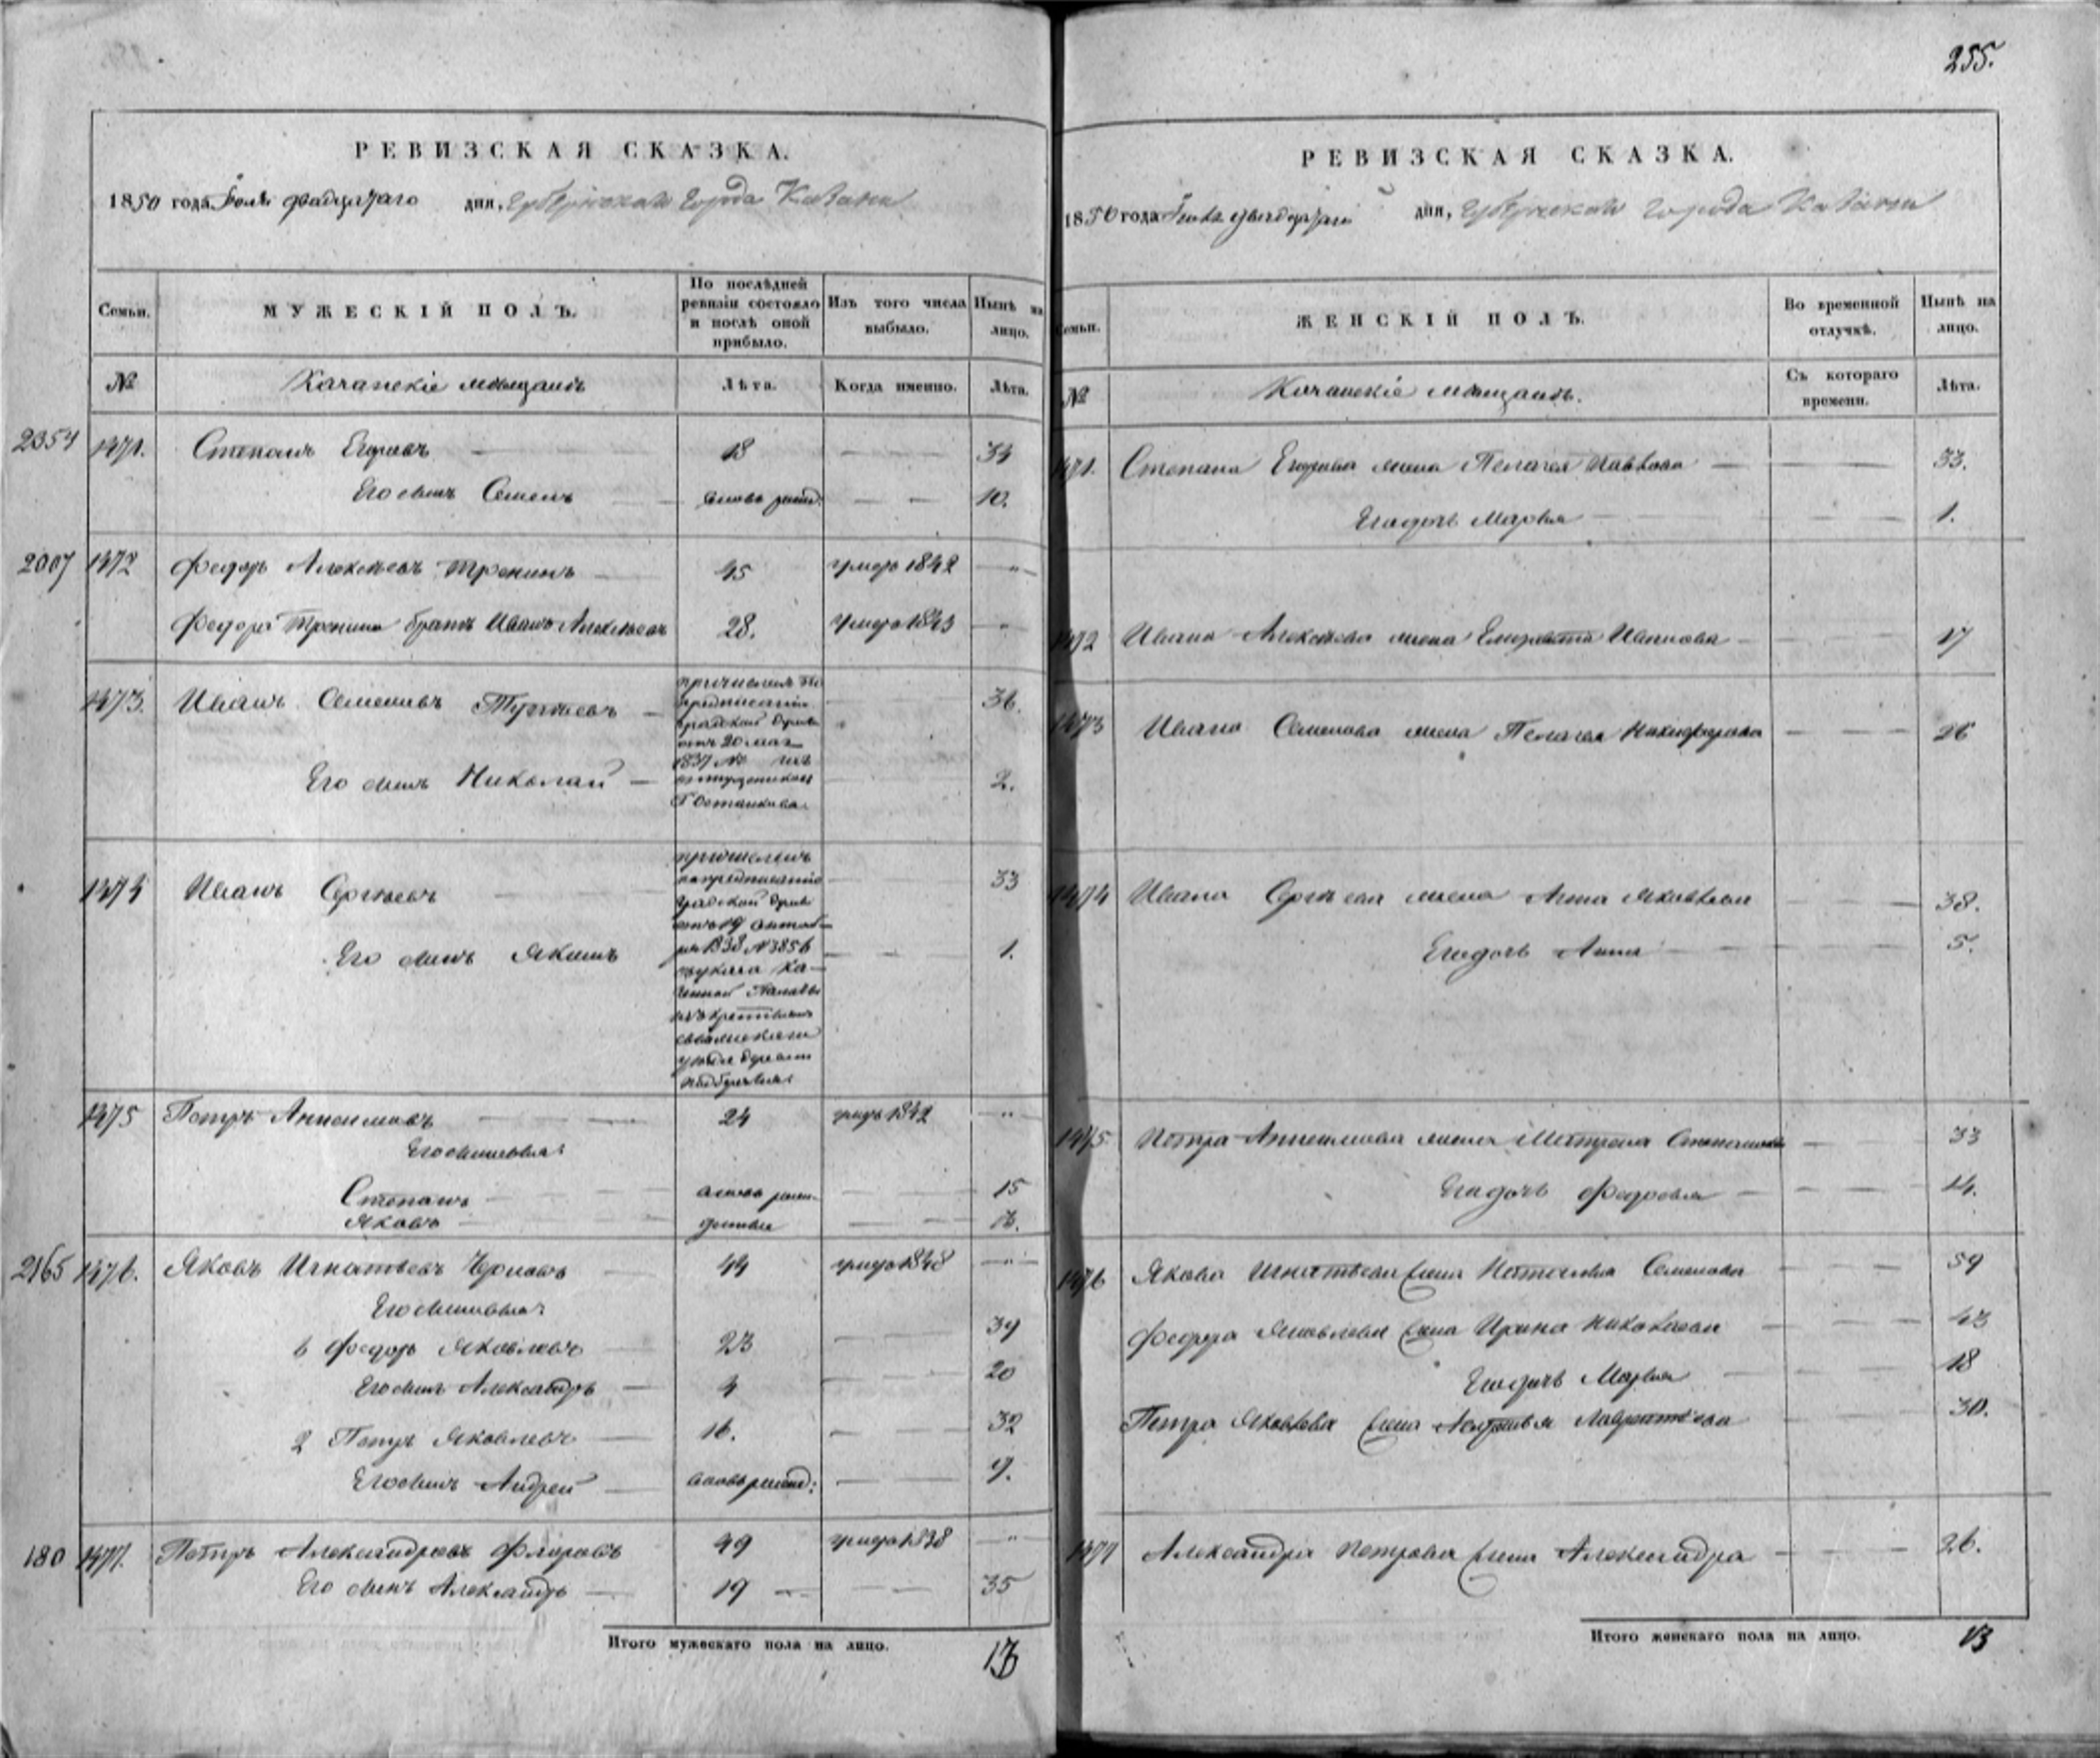 255.
РЕВИЗСКАЯ СКАЗКА.
1850 года Iюля двадцатаго дня, Губернскаго Города Казани
Семьи. МУЖЕСКІЙ ПОЛЪ. По послѣдней ревизіи состояло и послѣ оной прибыло. Изъ того числа выбыло. Нынѣ на лицо.
№ Казанскіе мѣщанѣ Лѣта. Когда именно. Лѣта.
2354 1471. Степанъ Егоровъ 18 — — 34
Его сынъ Семенъ вновь рожд. — — 10.
2007 1472 Федоръ Алексѣевъ Тренинъ 45 умеръ 1842 — " —
Федора Тренина братъ Иванъ Алексѣевъ 28. умеръ 1843 — " —
1473. Иванъ Семеновъ 36.
причисленъ по
предписанію
градской думы
отъ 20 мая
1837 №
Его сынъ Николай — 2.
1474 Иванъ Сергѣевъ 33
причисленъ
по предписанію
градской думы
отъ 19 октяб—
ря 1838 № 3856
Его сынъ Якимъ 1.
указа Ка—
зенной Палаты
изъ крестьянъ
уѣзда деревни
1475 Петръ Анисимовъ 24 умеръ 1842 — " —
Его сыновья:
Степанъ вновь рожд. — — 15
Яковъ — —
2165 1476. Яковъ Игнатьевъ Черновъ 44 умеръ 1848 — " —
Его сыновья:
1 Федоръ Яковлевъ 23 — — 39
Его сынъ Александръ — 4 — — 20
2 Петръ Яковлевъ — 16. — — 32
Его сынъ Андрей — вновь рожд: — — 9.
180 1477. Петръ Александровъ Флоровъ 49 умеръ 1838 — " —
Его сынъ Александръ — 19 — — 35
Итого мужескаго пола на лицо. 13
РЕВИЗСКАЯ СКАЗКА.
1850 года Iюля двадцатаго дня, Губернскаго города Казани
Семьи. ЖЕНСКІЙ ПОЛЪ. Во временной отлучкѣ. Нынѣ на лицо.
№ Казанскіе мѣщанѣ. Съ котораго времени. Лѣта.
1471. Степана Егорова жена Пелагея Павлова — 33.
Его дочь Марья — 1.
1472 Ивана Алексѣева жена Елизавета Иванова — 17
1473 Ивана Семенова жена Пелагея Никифорова — 26
1474 Ивана Сергѣева жена Анна Яковлева — 38.
Его дочь Анна — 5.
1475 Петра Анисимова жена Матрена Степанова — 33
Его дочь Федосья — 14.
1476 Якова Игнатьева жена Наталья Семенова — 59
Федора Яковлева жена Ирина Николаева — 43
Его дочь Марья — 18
Петра Яковлева жена Лаврентьева — 30.
1477 Александра Петрова жена Александра — 26.
Итого женскаго пола на лицо. 13